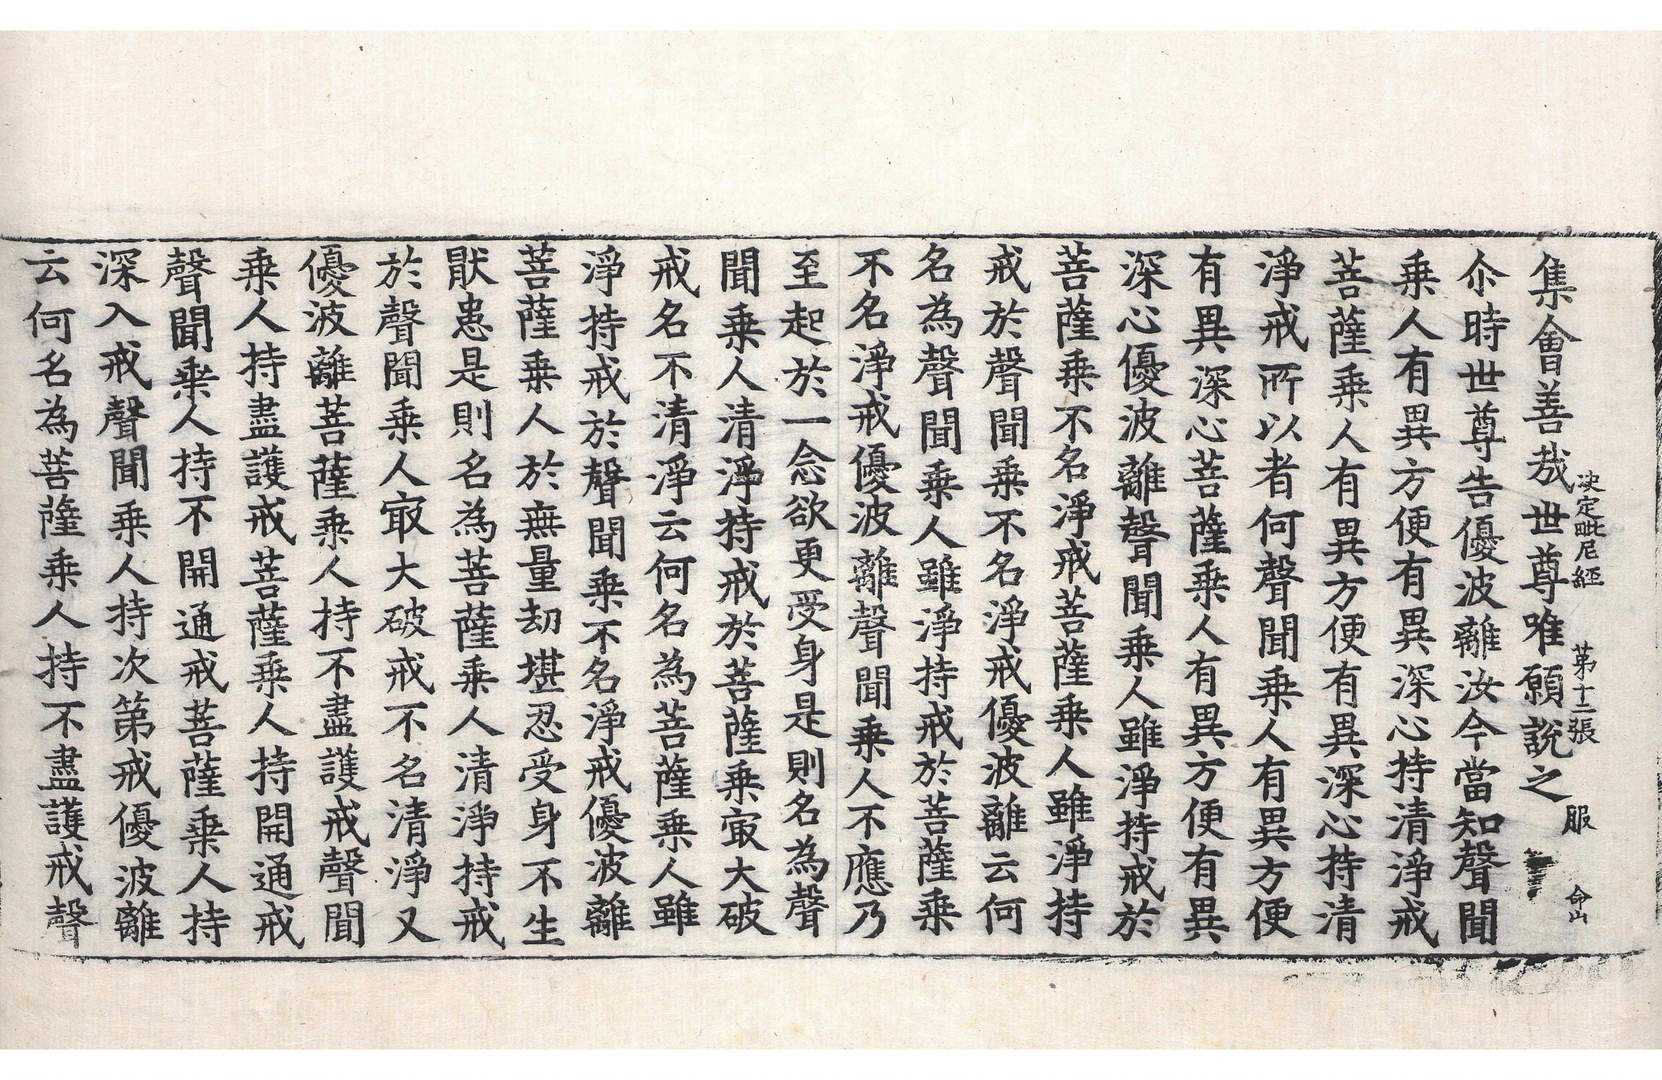 決定毗尼經 第十二張 服 命山
集會善哉世尊唯願說之
尒時世尊告優波離汝今當知聲聞
乗人有異方便有異深心持清淨戒
菩薩乗人有異方便有異深心持清
淨戒所以者何聲聞乗人有異方便
有異深心菩薩乗人有異方便有異
深心優波離聲聞乗人雖淨持戒於
菩薩乗不名淨戒菩薩乗人雖淨持
戒於聲聞乗不名淨戒優波離云何
名為聲聞乗人雖淨持戒於菩薩乗
不名淨戒優波離聲聞乗人不應乃
至起於一念欲更受身是則名為聲
聞乗人清淨持戒於菩薩乗㝡大破
戒名不清淨云何名為菩薩乗人雖
淨持戒於聲聞乗不名淨戒優波離
菩薩乗人於無量劫堪忍受身不生
猒患是則名為菩薩乗人清淨持戒
於聲聞乗人㝡大破戒不名清淨又
優波離菩薩乗人持不盡護戒聲聞
乗人持盡護戒菩薩乗人持開通戒
聲聞乗人持不開通戒菩薩乗人持
深入戒聲聞乗人持次第戒優波離
云何名為菩薩乗人持不盡護戒聲